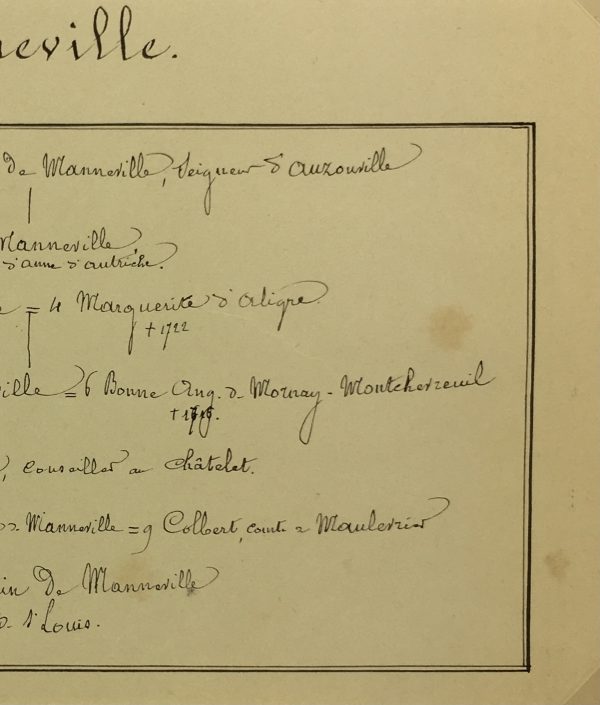 neville.
de Manneville, Seigneur d'auzouville
Manneville,
d'anne d'autriche.
e = 4 Marguerite d'aligre
+ 1722
ville = 6 Bonne Ang. de Mornay - Montcherreuil
, Conseiller au Châtelet.
de Manneville = 9 Colbert, comte de Maulevrier
in De Manneville
St Louis.